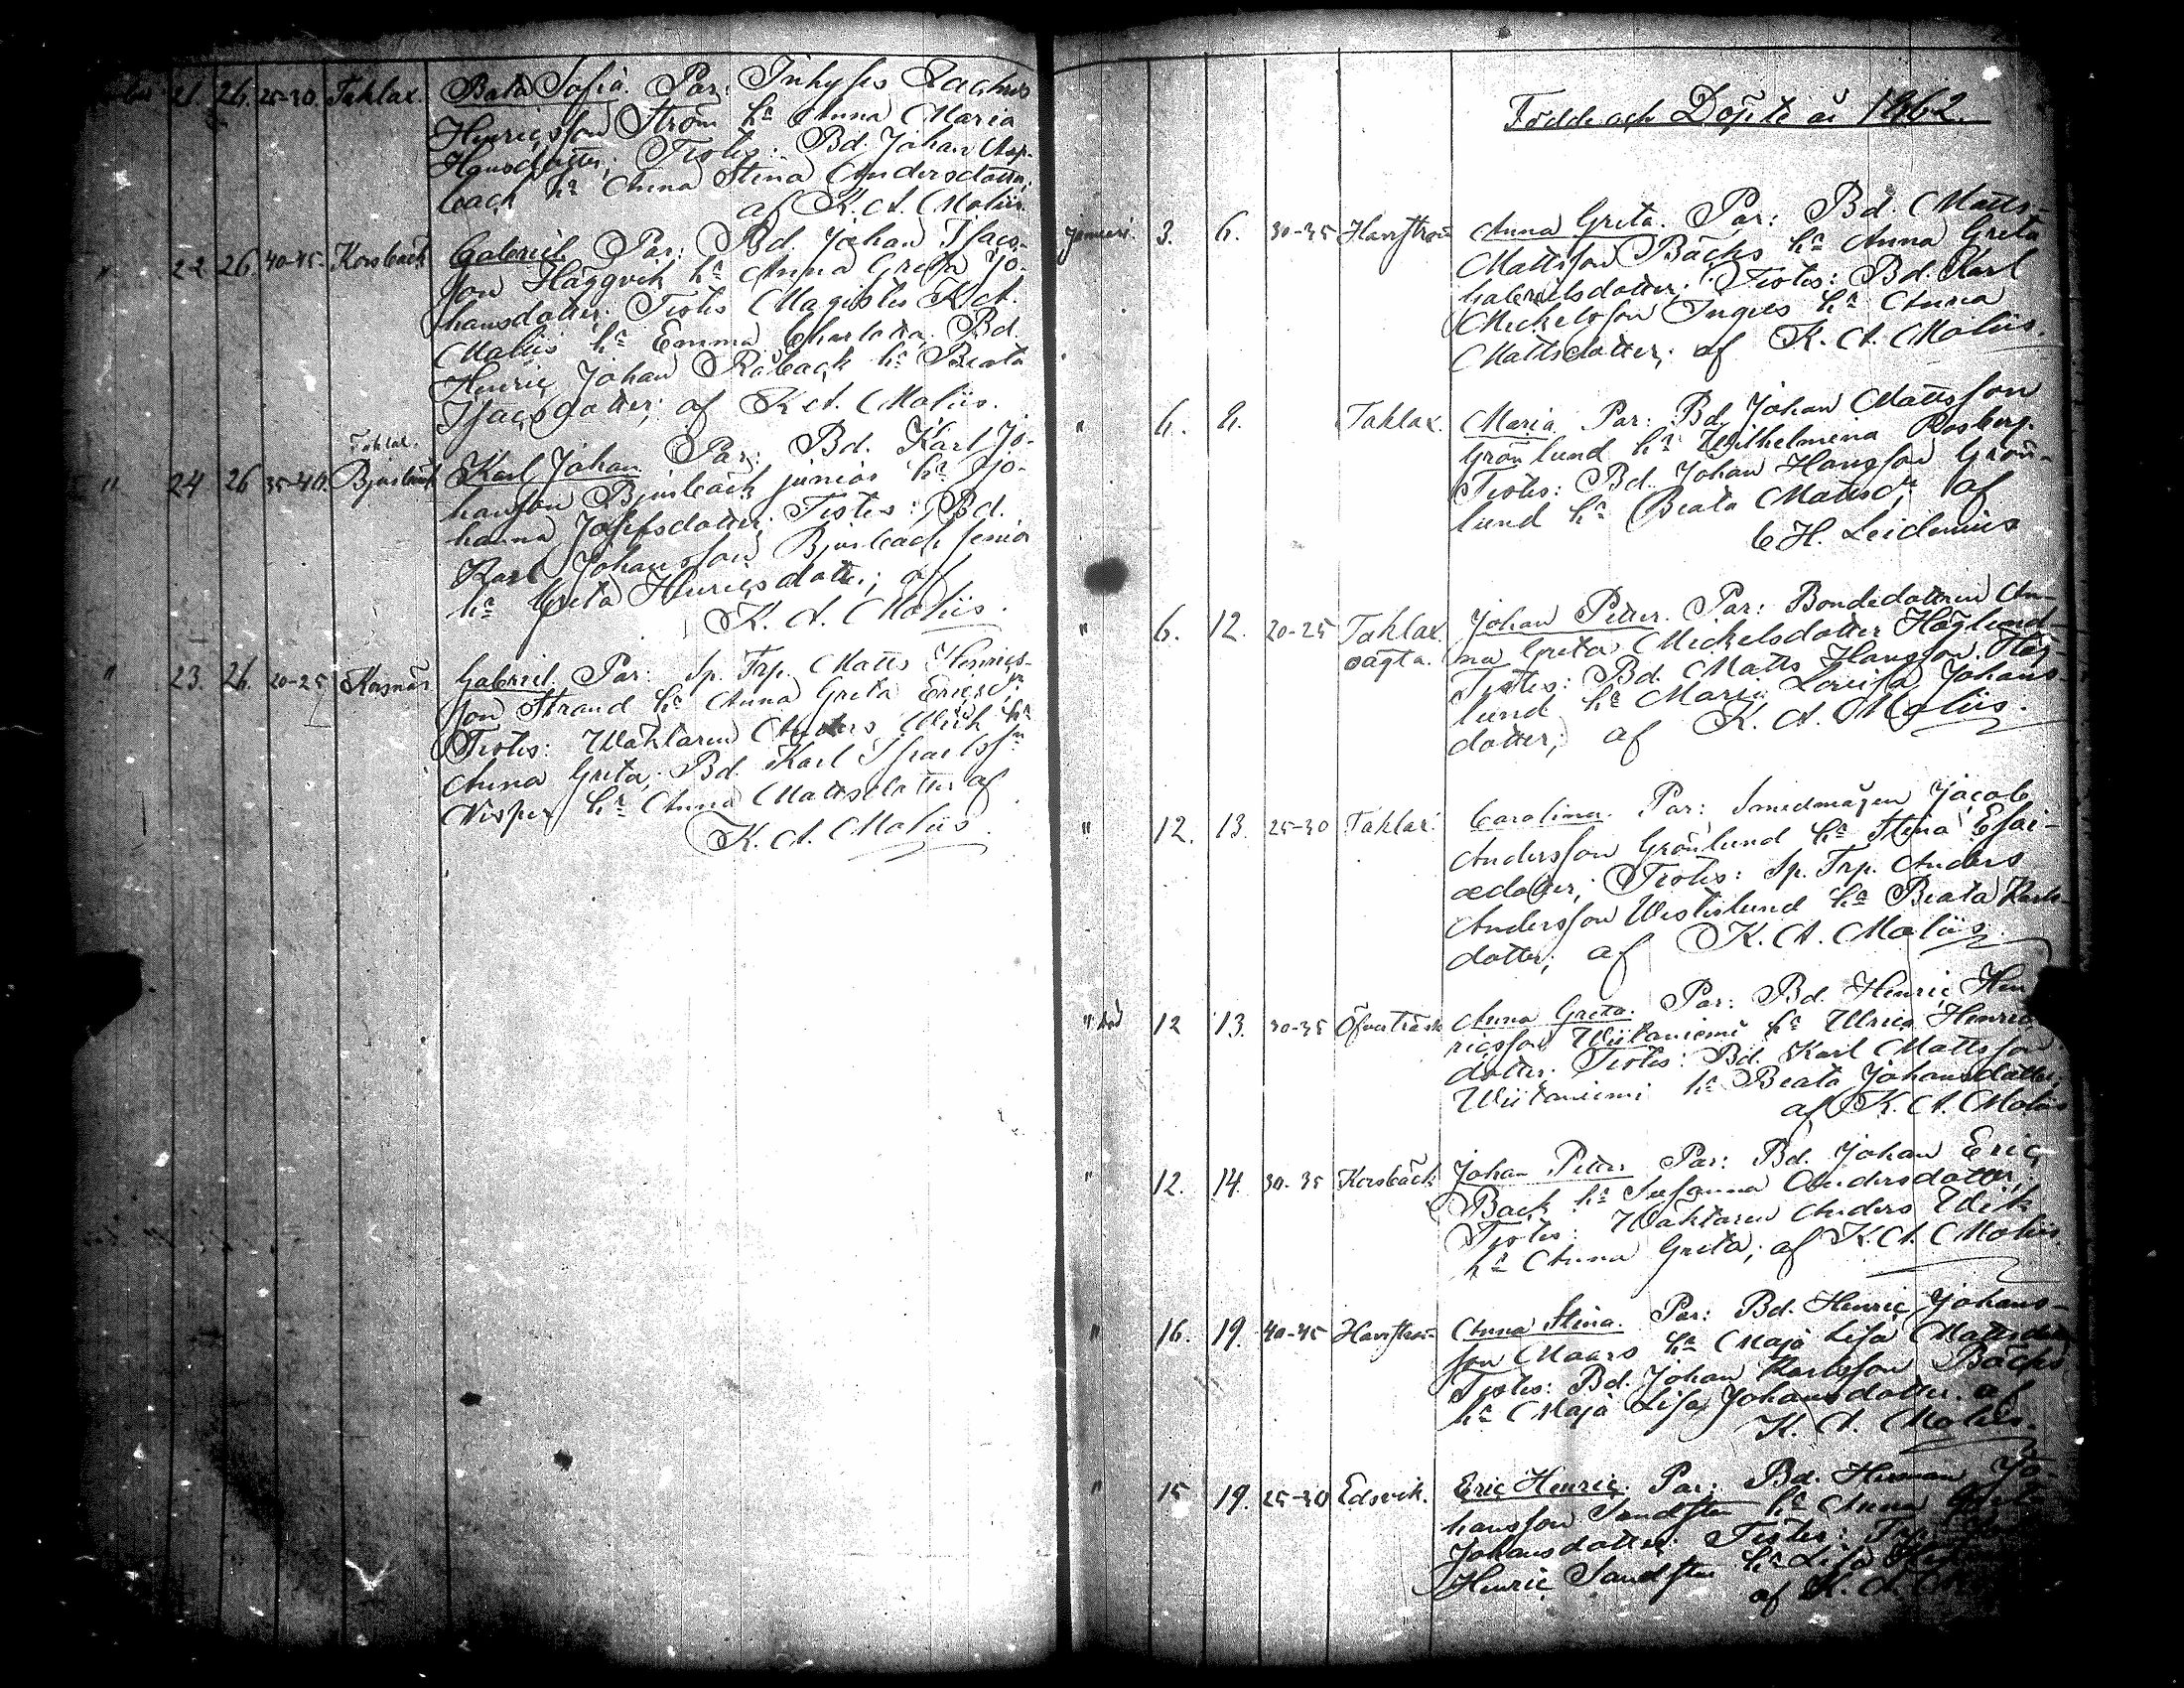 21. 26. 25-30. Taklax. Beata Sofia. Par: Inhyses Zachris
Henricsson Ström h:a Anna Maria
Hansdotter; Testes: Bd. Johan Asp-
back h:a Anna Stina Andersdotter;
af K. A. Moliis.
" 22. 26. 40-45. Korsbäck Gabriel. Par: Bd. Johan Isacs-
son Häggvik h:a Anna Greta Jo-
hansdotter. Testes Magister K. A.
Moliis h:a Emma Charlotta, Bd.
Henric Johan Råback h:a Beata
Isacsdotter; af K. A. Moliis.
Taklax.
" 24 26 35-40. Bjurbäck Karl Johan Par: Bd. Karl Jo-
hansson Bjurbäck junior h:a Jo-
hanna Josefsdotter; Testes: Bd.
Karl Johansson Bjurback senior
h:a Greta Henricsdotter; af
K. A. Moliis.
" 23. 26. 20-25 Korsnäs Gabriel. Par: Sp. Trp. Matts Henrics-
son Strand h:a Anna Greta Ericsd:r
Testes: Waktaren Anders Wiik h:a
Anna Greta, Bd. Karl Israelss:n
Nisper h:a Anna Mattsdotter af
K. A. Moliis.
Födde och Döpte år 1862.
Januari. 3. 6. 30-35 Harrström Anna Greta. Par: Bd. Matts
Mattsson Bäcks h:a Anna Greta
Gabrielsdotter; Testes: Bd. Karl
Mickelsson Ingves h:a Anna
Mattsdotter; af K. A. Moliis.
" 6. 8. Taklax. Maria. Par: Bd. Johan Mattsson
Grönlund h:a Wilhelmina Rosberg.
Testes: Bd. Johan Hansson Grön-
lund h:a Beata Mattsd:r; af
C H. Leidenius
" 6. 12. 20-25 Taklax. Johan Petter. Par: Bondedottren An-
oägta. na Greta Mickelsdotter Höglund
Testes: Bd. Matts Hansson Hög-
lund h:a Maria Lovisa Johans-
dotter; af K. A. Moliis.
" 12. 13. 25-30 Taklax. Carolina. Par: Smedmågen Jacob
Andersson Grönlund h:a Stina Esai-
ædotter; Testes: Sp. Trp. Anders
Andersson Westerlund h:a Beata Karls-
dotter; af K. A. Moliis.
" död 12 13. 30-35 Öfverträsk Anna Greta. Par: Bd. Henric Hen-
ricsson Wiitaniemi h:a Ulrica Henrics
dotter. Testes: Bd. Karl Mattsson
Wiitaniemi h:a Beata Johansdotter;
af K. A. Moliis
" 12. 14. 30-35 Korsbäck Johan Petter Par: Bd. Johan Eric
Back h:a Susanna Andersdotter;
Testes: Waktaren Anders Wiik
h:a Anna Greta; af K. A. Moliis.
" 16. 19. 40-45 Harrström Anna Stina. Par: Bd. Henric Johans-
son Maars h:a Maja Lisa Mattsdotter
Testes: Bd. Johan Karlsson Bäcks
h:a Maja Lisa Johansdotter. af
K. A. Moliis.
" 15 19. 25-30 Edsvik. Eric Henric. Par: Bd. Herman Jo-
hansson Sandsten h:a Anna Greta
Johansdotter. Testes: Trp.
Henric Sandsten h:a Lisa
af K. A.